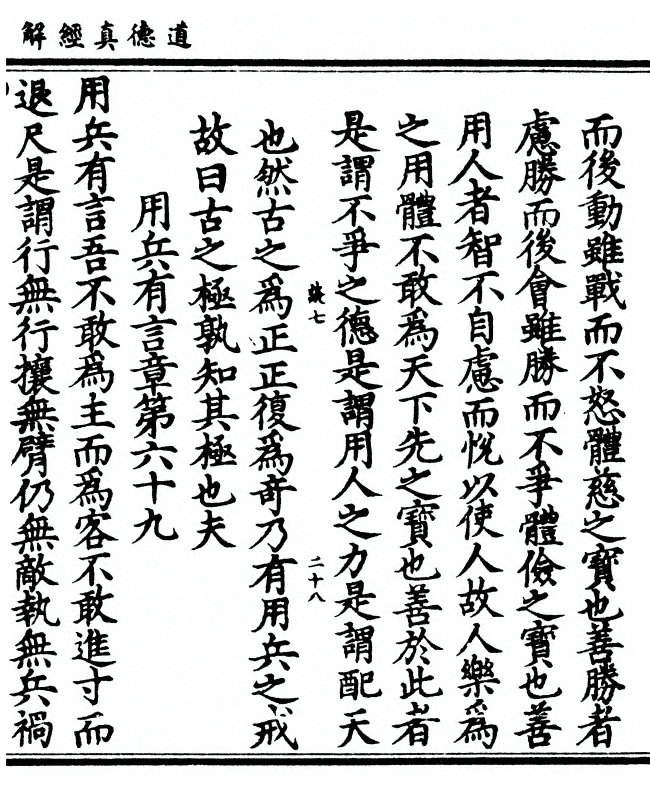 道德真經解
而後動雖戰而不怒體慈之寶也善勝者
慮勝而後會雖勝而不爭體儉之寶也善
用人者智不自慮而悅以使人故人樂爲
之用體不敢爲天下先之寶也善於此者
是謂不爭之德是謂用人之力是謂配天
二十八
也然古之爲正正復爲奇乃有用兵之戒
故曰古之極孰知其極也夫
用兵有言章第六十九
用兵有言吾不敢爲主而爲客不敢進寸而
退尺是謂行無行攘無臂仍無敵執無兵禍